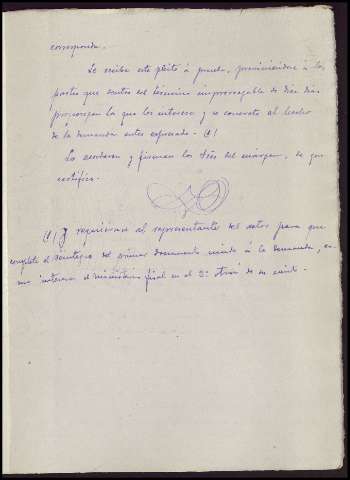 corresponda.
Se recibe este pleito á prueba, previniéndose á las
partes que dentro del término improrrogable de diez días
propongan la que les interese y se concrete al hecho
de la demanda antes expresado. (1)
Lo acordaron y firman los Sres del margen, de que
certifico.
(1) Y requiérase al representante del actor para que
complete el reintegro del primer documento unido á la demanda,
interesa el ministerio fiscal en el 2º otrosí de su escrito.